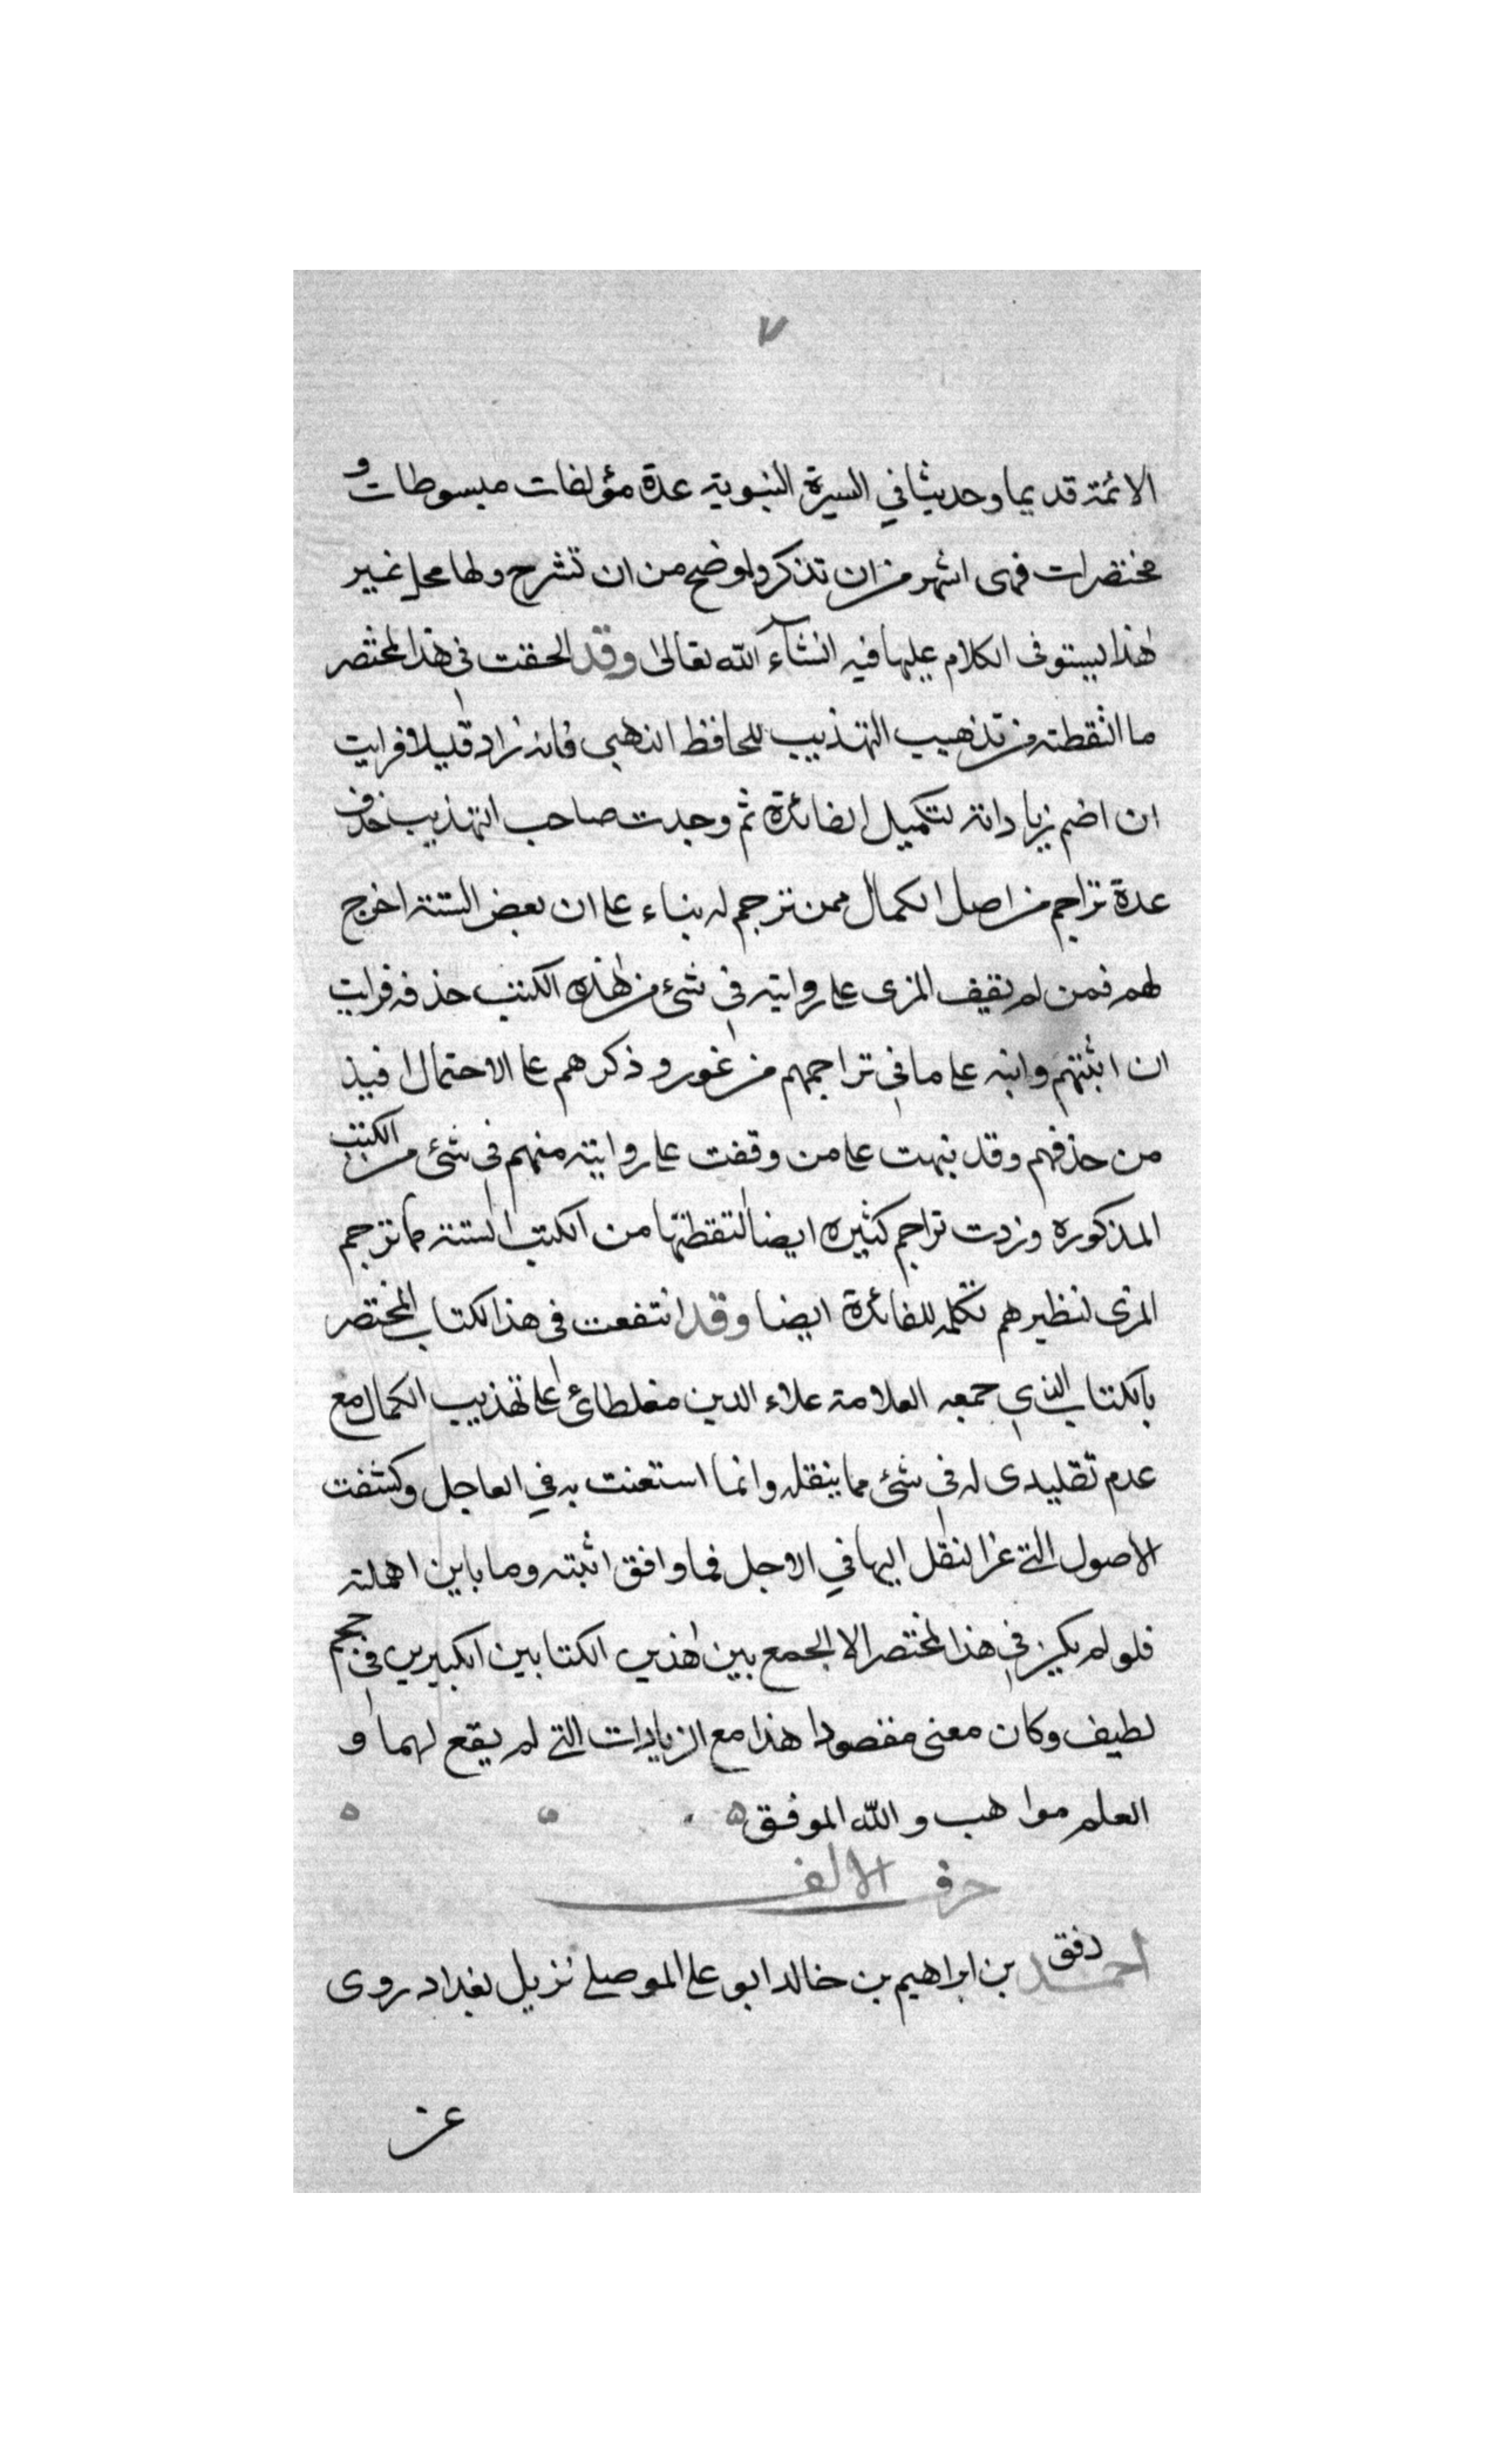 ٧
الائمة قديما وحديثا في السيرة النبوية عدة مؤلفات مبسوطات و
مختصرات فهى اشهر من ان تذكر واوضح من ان تشرح ولها محل غير
هذا ليستوفى الكلام عليها فيه انشآء الله تعالى وقد الحقت فى هذا المختصر
ما التقطته من تذهيب التهذيب للحافظ الذهبى فانه زاد قليلا فرايت
ان اضم زياداته لتكميل الفائدة ثم وجدت صاحب التهذيب حذف
عدة تراجم من اصل الكمال ممن ترجم له بناء على ان بعض الستة اخرج
لهم فمن لم يقف المزى على روايته فى شئ من هذه الكتب حذفه فرايت
ان اثبتهم وانبه على ما فى تراجمهم من غور و ذكرهم على الاحتمال افيد
من حذفهم وقد نبهت على من وقفت على روايته منهم فى شئ من الكتب
المذكوره وزدت تراجم كثيره ايضا التقطتها من الكتب الستة مما ترجم
المزى لنظيرهم تكمله للفائدة ايضا وقد انتفعت فى هذا الكتاب المختصر
بالكتاب الذي جمعه العلامة علاء الدين مغلطائ على تهذيب الكمال مع
عدم تقليدى له فى شئ مما ينقله وانما استعنت به في العاجل وكشفت
الاصول التى عزا لنقل اليها في الاجل فما وافق اثبته وما باين اهملته
فلو لم يكن في هذا المختصر الا الجمع بين هذين الكتابين الكبيرين فى حجم
لطيف وكان معنى مقصودا هذا مع الزيادات التى لم يقع لهما و
العلم مواهب والله الموفق
حرف الالف
احمد دفق بن ابراهيم بن خالد ابو على الموصلى نزيل بغداد روى
عن